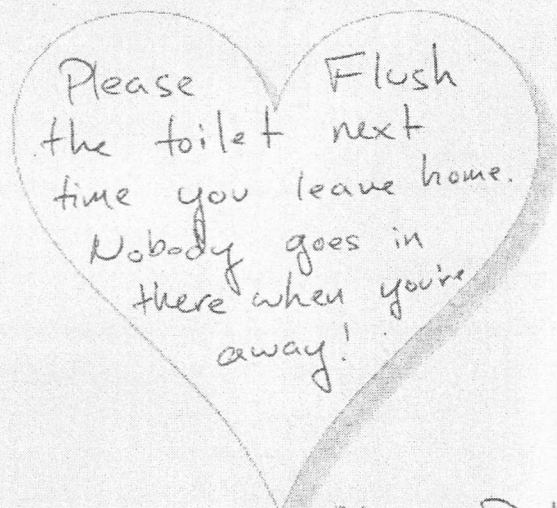 Please Flush
the toilet next
time you leave home.
Nobody goes in
there when you're
away!